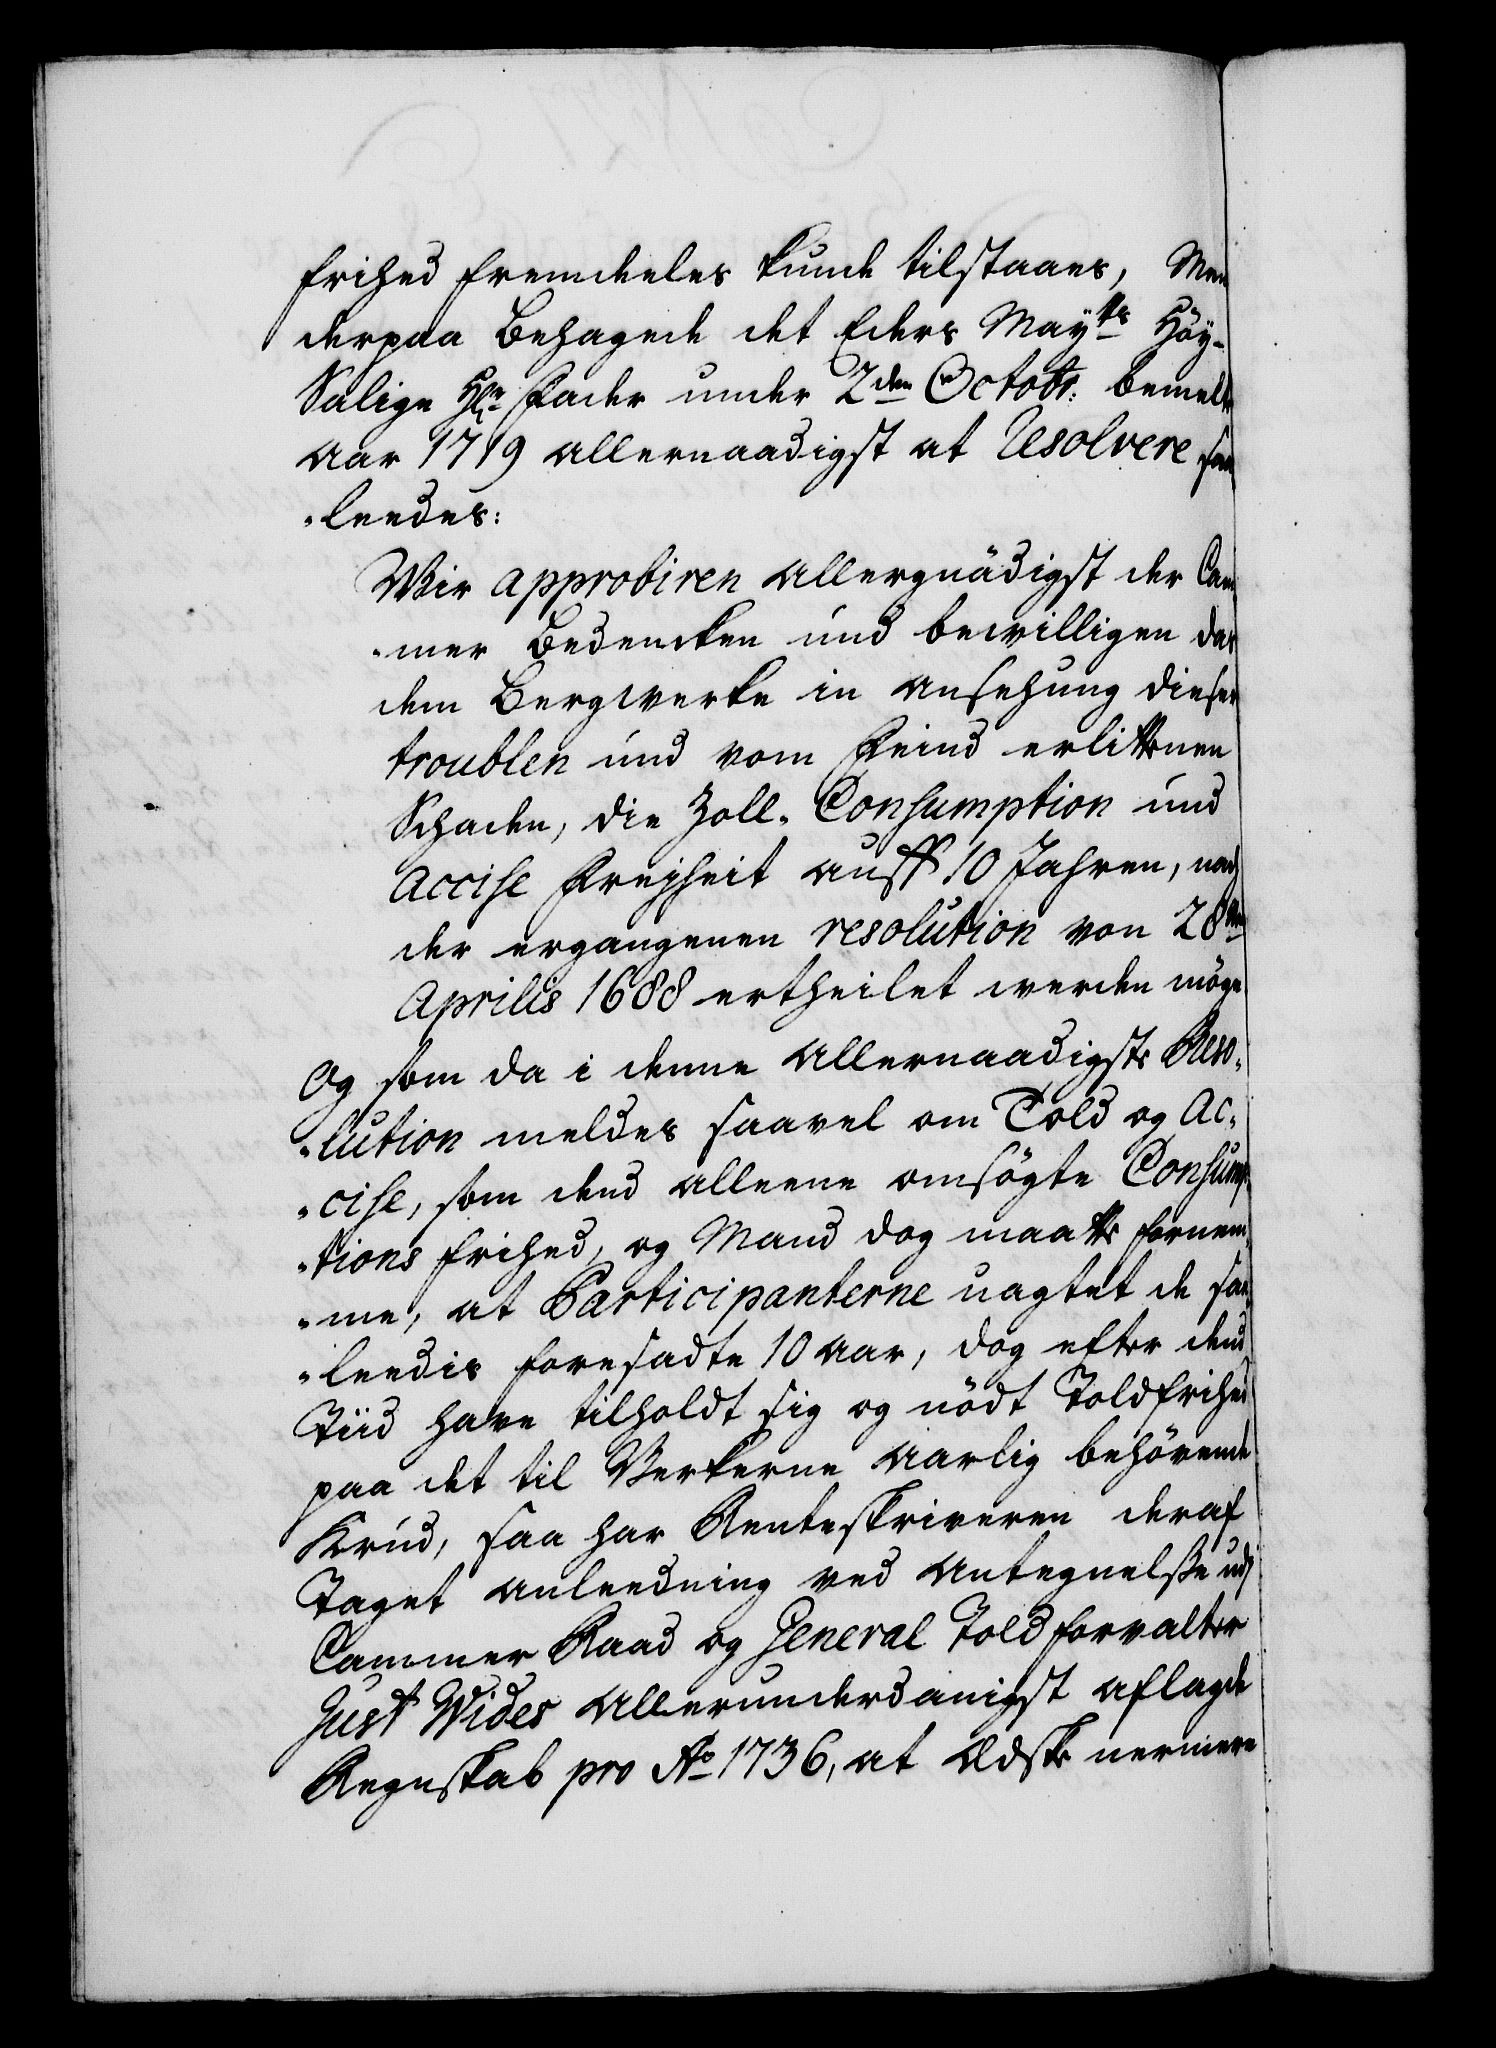 frihed fremdeeles kunde tilstaaes, Men
derpaa behagede det Eders Mayts Höy-
Salige Hr Fader under 2den Octobr: bemelte
Aar 1719 allernaadigst at Resolvere saa
-leedes:
Wir approbiren Allergnädigst der Cam
-mer Bedencken und bewilligen das
dem Bergwerke in Ansehung dieser
troublen und vom Feind erlittenen
Schaden, die Zoll- Consumption und
Accise Freyheit auff 10 Jahren, nach
der ergangenen resolution von 28ten
Aprilis 1688 ertheilet werden möge
Og som da i denne Allernaadigste Reso-
-lution meldes saavel om Told og Ac-
-cise, som dend alleene omsögte Consump-
-tions frihed, og Mand dog maatte fornem-
-me, at Participanterne uagtet de saa-
-leedis foresadte 10 Aar, dog efter dend
Tiid have tilholdt sig og nödt Toldfrihed
paa det til Verkerne Aarlig behövende
Krud, saa har Renteskriveren deraf
Taget Anleedning ved Antegnelsse udi
Cammer Raad og General Toldforvalter
Just Wides Allerunderdanigst aflagde
Regnskab pro Ao 1736, at Ædske nermere